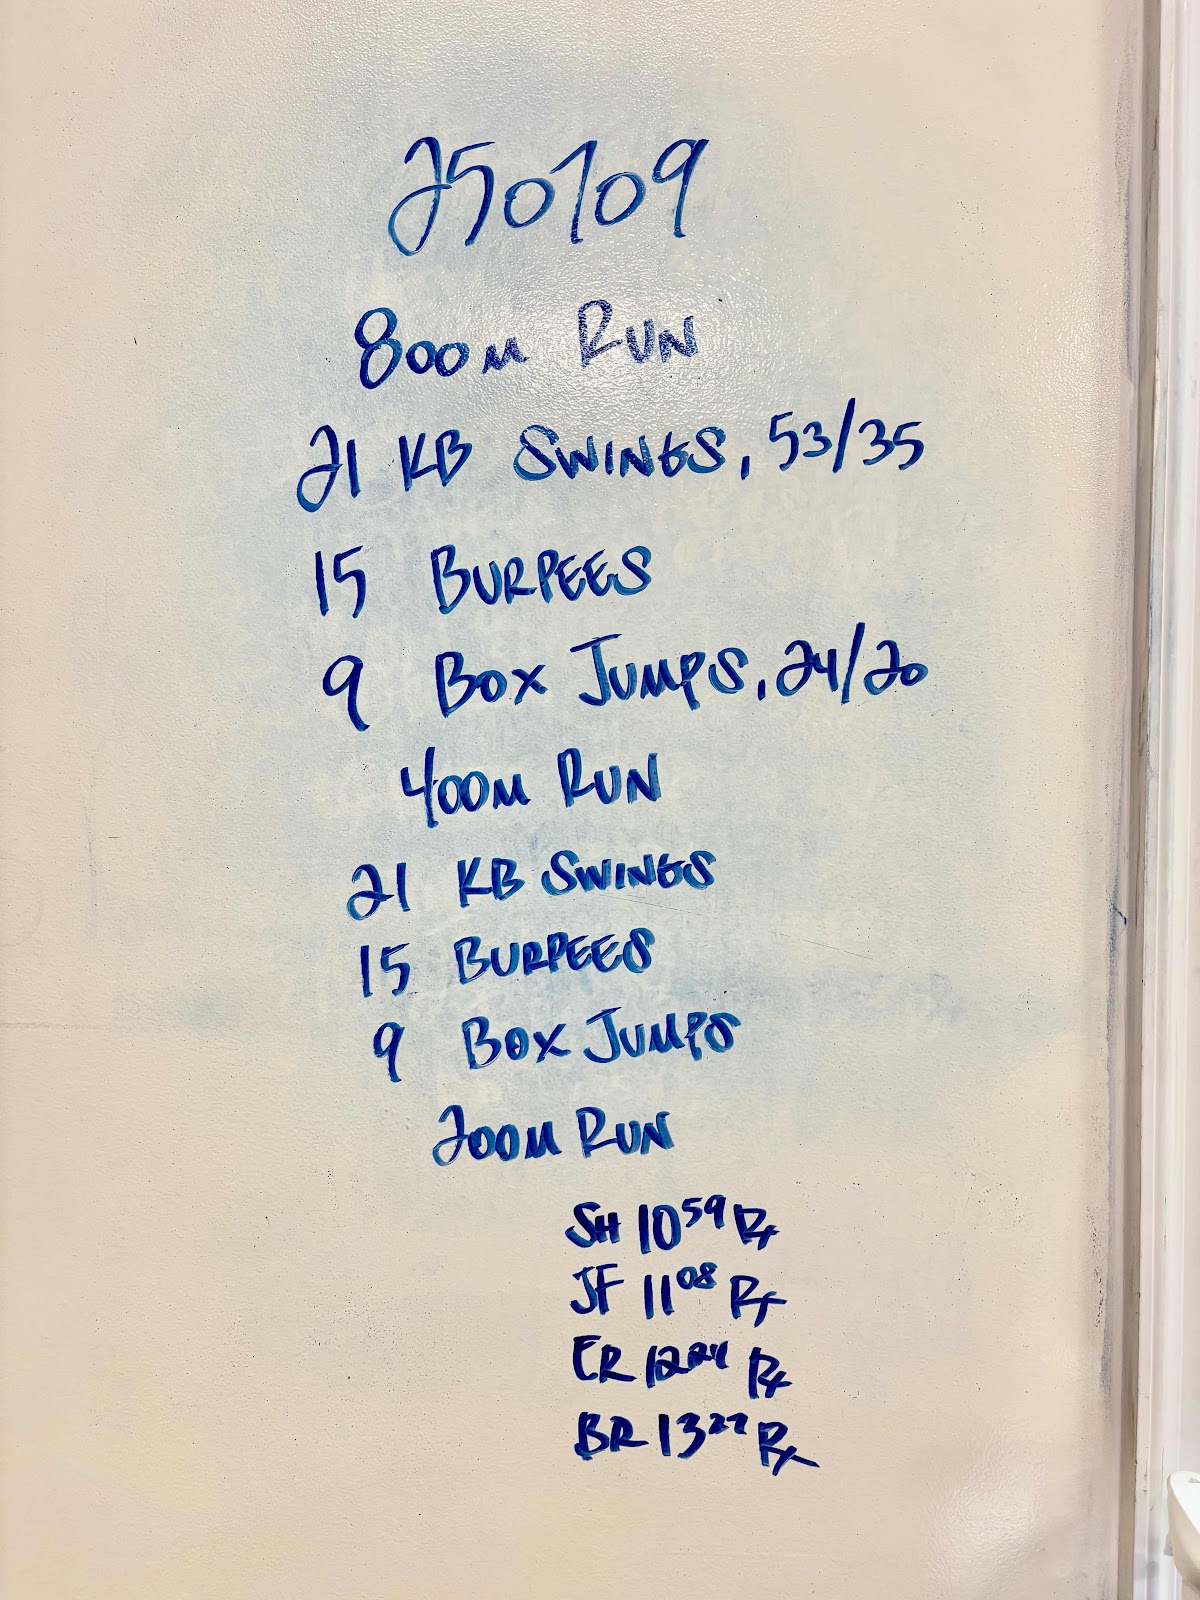 250709
800M RUN
21 KB SWINGS, 53/35
15 BURPEES
9 BOX JUMPS, 24/20
400M RUN
21 KB SWINGS
15 BURPEES
9 BOX JUMPS
200M RUN
SH 10 59 Rx
JF 11 08 Rx
ER 12 24 Rx
BR 13 Rx